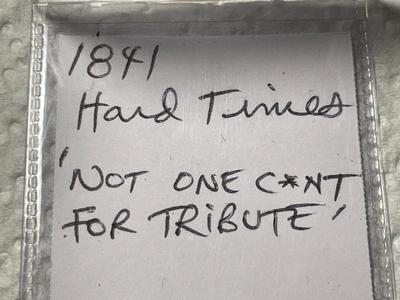 1841
Hard Times
'NOT ONE C*NT
FOR TRIBUTE'